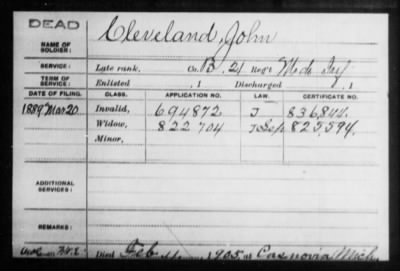 DEAD
NAME OF SOLDIER: Cleveland, John
SERVICE: Late rank, Co. B. 21 Reg't Mich Inf
TERM OF SERVICE: Enlisted , 1 Discharged , 1
DATE OF FILING. CLASS. APPLICATION NO. LAW. CERTIFICATE NO.
1889 Mar 20 Invalid, 694872 J 836844
Widow, 822704 825,594
Minor,
ADDITIONAL SERVICES:
REMARKS:
Died Feb 1905, at Casnovia Mich